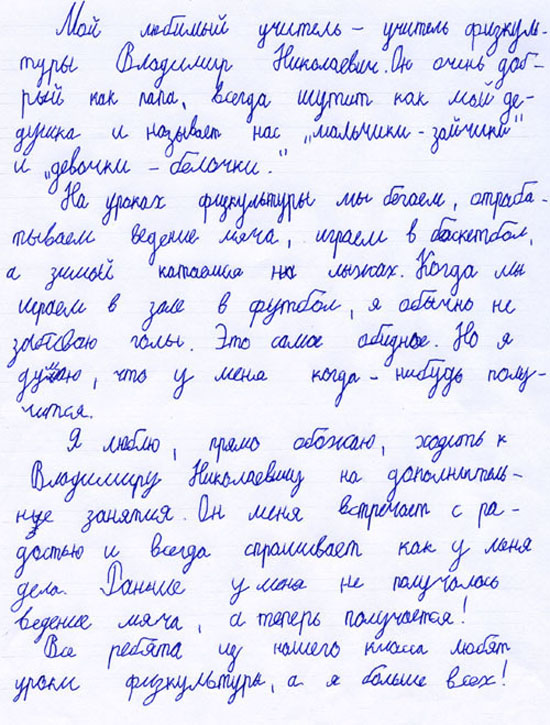 Мой любимый учитель – учитель физкуль-
туры Владимир Николаевич. Он очень доб-
рый как папа, всегда шутит как мой де-
душка и называет нас „мальчики - зайчики"
и „девочки – белочки."
На уроках физкультуры мы бегаем, отраба-
тываем ведение мяча, играем в баскетбол,
а зимой катаемся на лыжах. Когда мы
играем в зале в футбол, я обычно не
забиваю голы. Это самое обидное. Но я
думаю, что у меня когда - нибудь полу-
чится.
Я люблю, прямо обожаю, ходить к
Владимиру Николаевичу на дополнитель-
ные занятия. Он меня встречает с ра-
достью и всегда спрашивает как у меня
дела. Раньше у меня не получалось
ведение мяча, а теперь получается!
Все ребята из нашего класса любят
уроки физкультуры, а я больше всех!